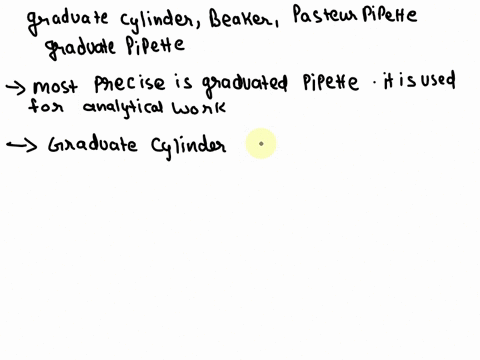 graduate cylinder, Beaker, Pasteur Pipette
graduate Pipette
→ most Precise is graduated Pipette. it is used
for analytical work
→ Graduate Cylinder